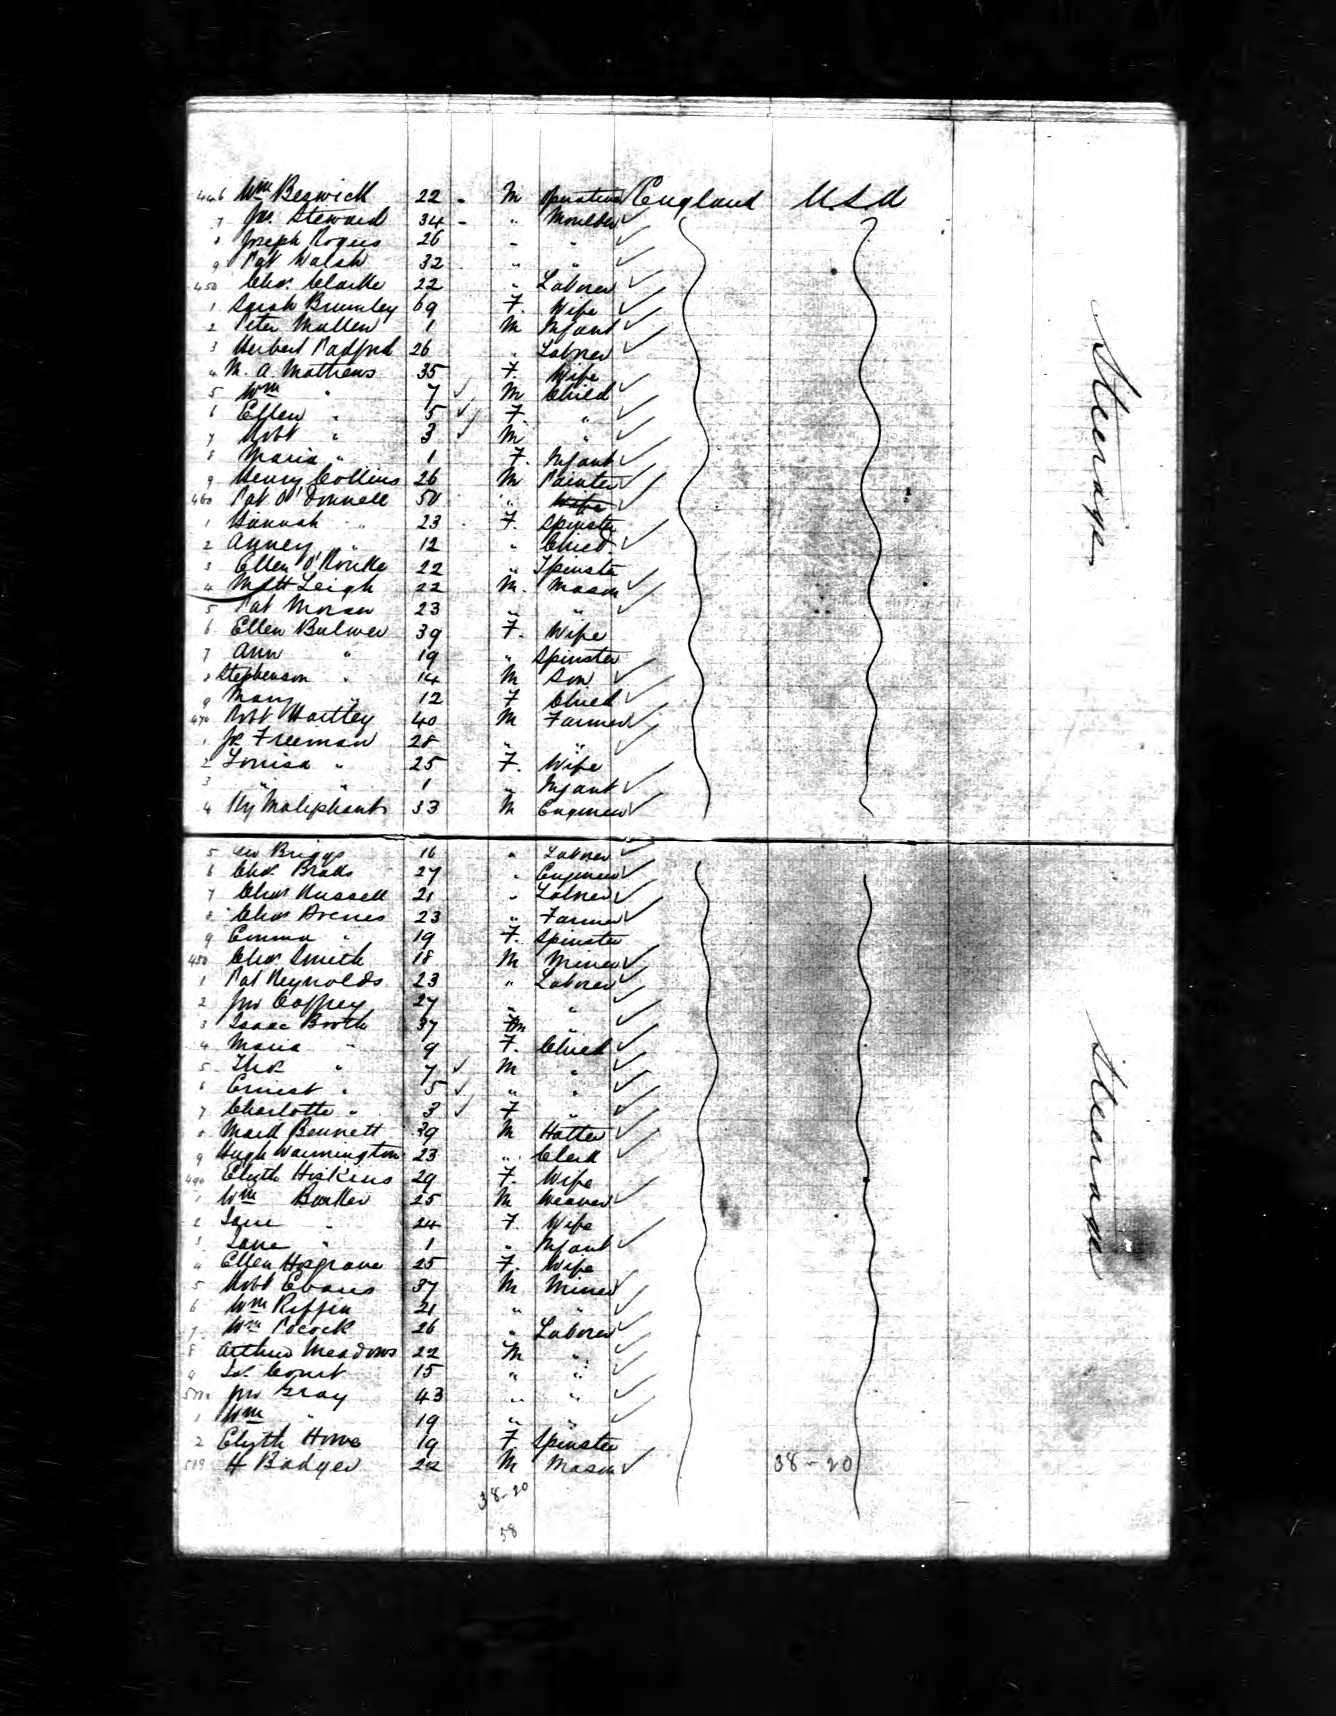 446 Wm Beswick 22 M Operative England U.S.A
7 Jas. Steward 34 " Moulder
8 Joseph Rogers 26 " "
9 Pat Walsh 32 " "
450 Chas. Clarke 22 " Laborer
1 Sarah Brumley 69 F. Wife
2 Peter Mullen 1 M Infant
3 Herbert Padford 26 " Laborer
4 M. A. Mathews 35 F. Wife
5 Wm " 7 M Child
6 Ellen " 5 F. "
7 Robt " 3 M "
8 Maria " 1 F. Infant
9 Henry Collins 26 M Painter
460 Pat O'Donnell 50 "
1 Hannah " 23 F. Spinster
2 Anney " 12 " Child
3 Ellen O'Rourke 22 " Spinster
4 Matt Leigh 22 M. Mason
5 Pat Moran 23 " "
6 Ellen Bulmer 39 F. Wife
7 Ann " 19 " Spinster
8 Stephenson " 14 M Son
9 Mary " 12 F Child
470 Robt Hartley 40 M Farmer
1 Js. Freeman 28 " "
2 Louisa " 25 F. Wife
3 " " 1 " Infant
4 Hy Maliphant 33 M Engineer
Steerage
5 Geo Briggs 16 " Laborer
6 Chas. 27 " Engineer
7 Chas Russell 21 " Laborer
8 Chas 23 " Farmer
9 Emma " 19 F. Spinster
480 Chas. Smith 18 M Miner
1 Pat Reynolds 23 " Laborer
2 Jno Caffrey 27 " "
3 Isaac Booth 37 M "
4 Maria " 9 F. Child
5 Thos " 7 M "
6 Ernest " 5 " "
7 Charlotte " 3 F "
8 Mark Bennett 39 M Hatter
9 Hugh Warmington 23 " Clerk
490 Elizth Hiskins 29 F. Wife
1 Wm Barker 25 M Weaver
2 Jane " 24 F. Wife
3 Jane " 1 " Infant
4 Ellen Hosgrave 25 F. Wife
5 Robt Evans 37 M Miner
6 Wm Riffin 21 " "
7 Wm Pocock 26 " Laborer
8 Arthur Meadows 22 M "
9 Court 15 " "
500 Jno Gray 43 " "
1 Wm " 19 " "
2 Elizth Howe 19 F Spinster
H Badger 22 M Mason 38-20
38-20
58
Steerage